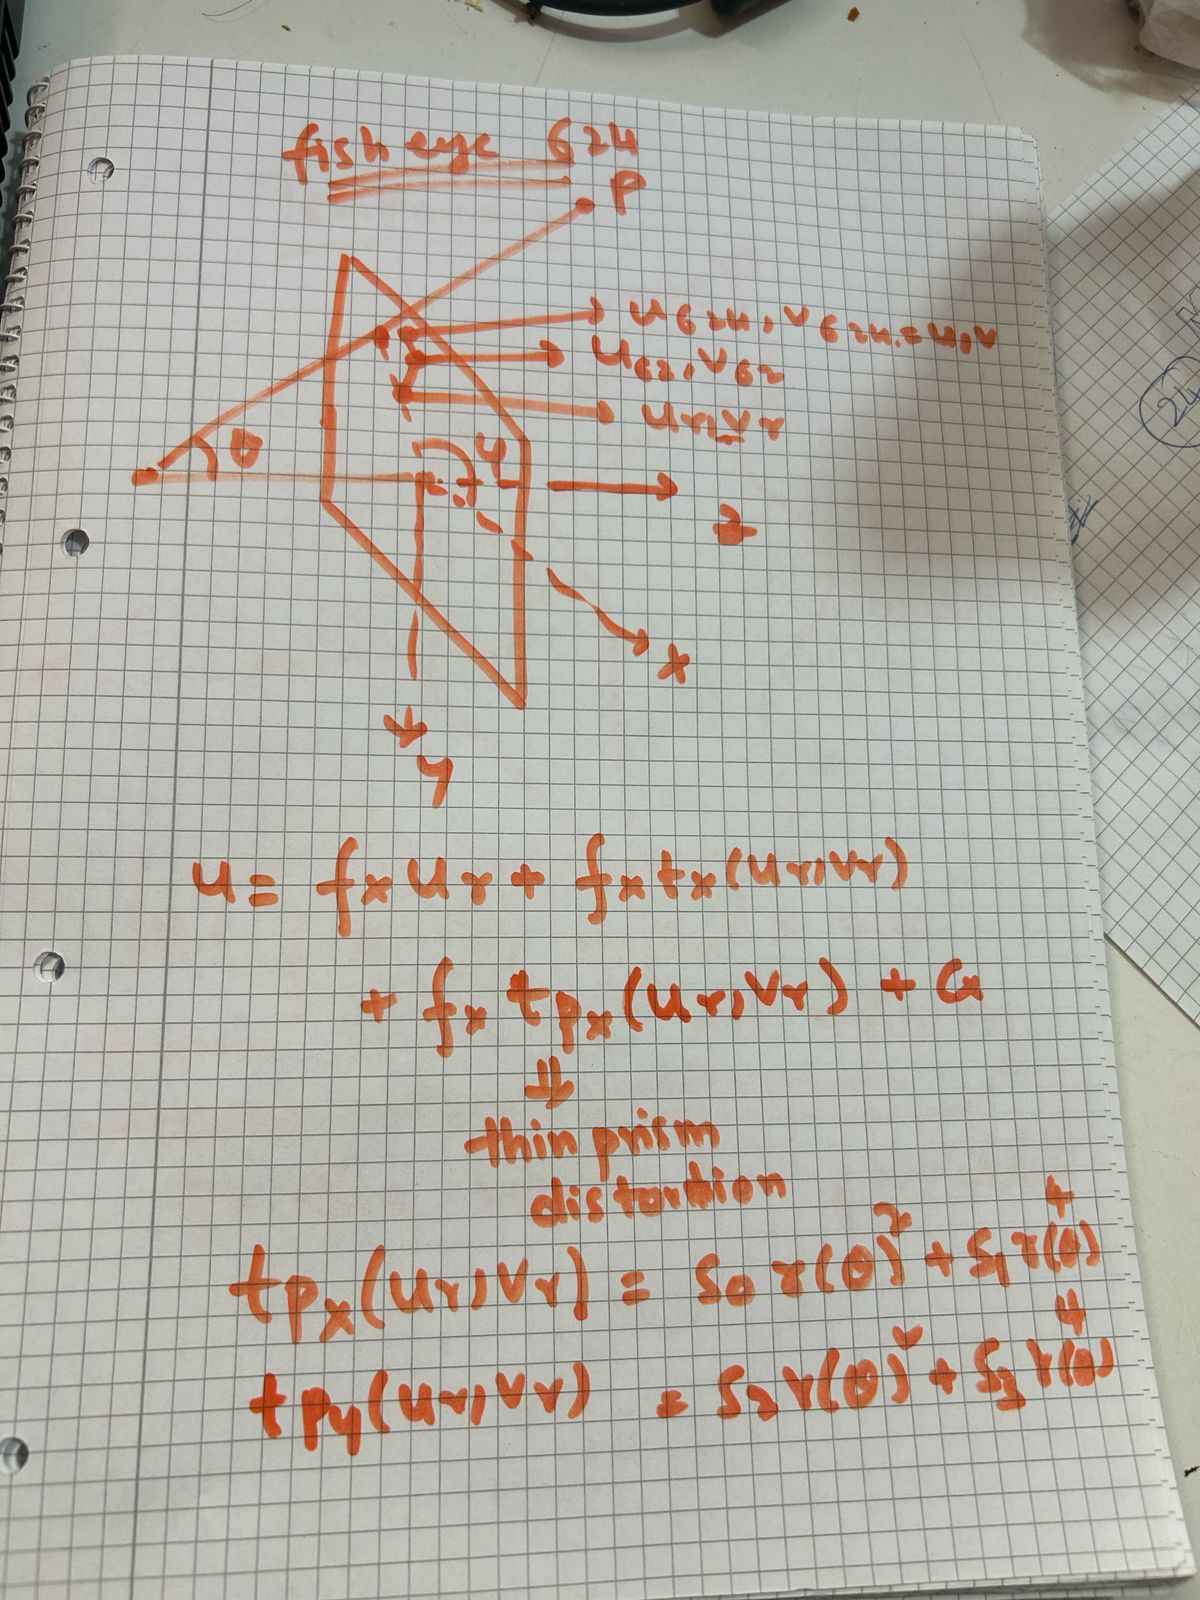 fisheye 624
P
u624, v624 = u, v
u62, v62
ur, vr
θ
φ
z
x
y
u = fx ur + fx tx(ur, vr)
+ fx tpx(ur, vr) + cx
⇓
thin prism
distortion
tpx(ur, vr) = s0 r(θ)² + s1 r(θ)⁴
tpy(ur, vr) = s2 r(θ)² + s3 r(θ)⁴
24